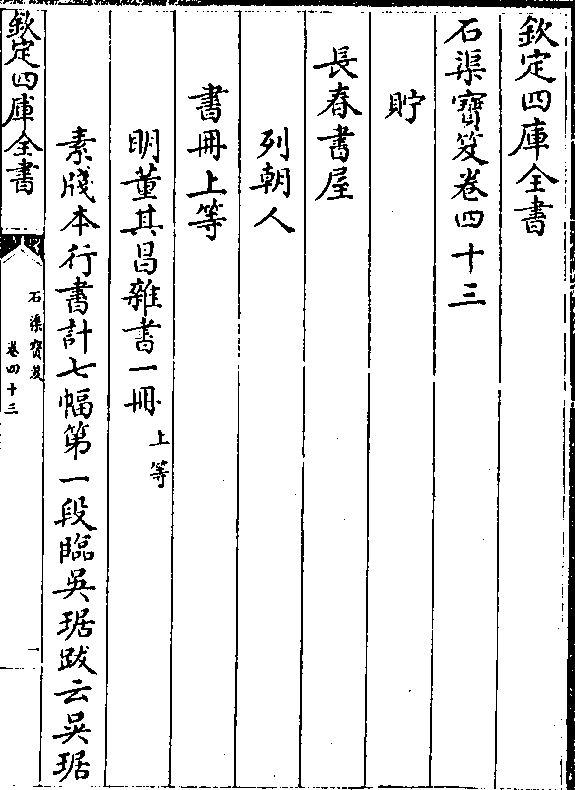 欽定四庫全書
石渠寶笈卷四十三
貯
長春書屋
列朝人
書冊上等
明董其昌雜書一冊 上等
素牋本行書計七幅第一段臨吳琚跋云吳琚
欽定四庫全書
石渠寶笈
卷四十三
一